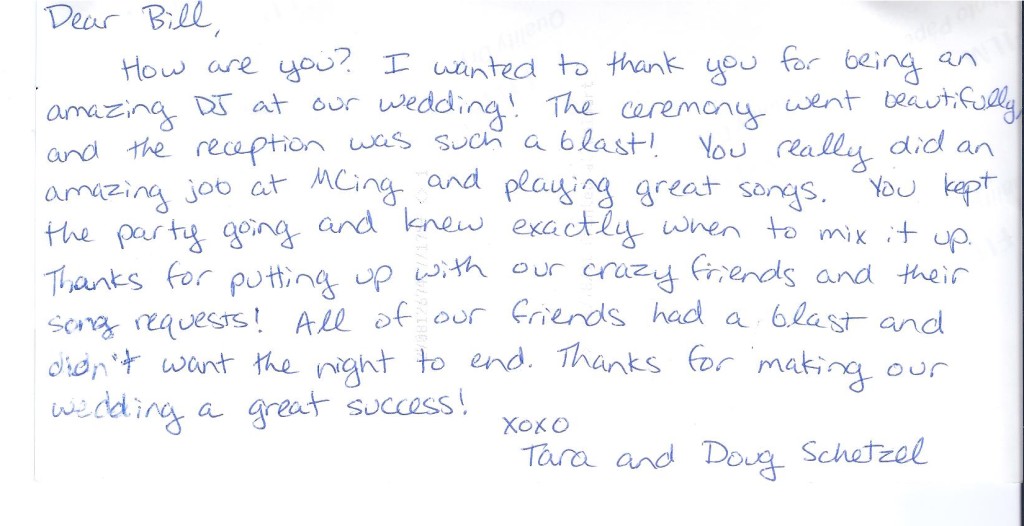 Dear Bill,
How are you? I wanted to thank you for being an
amazing DJ at our wedding! The ceremony went beautifully,
and the reception was such a blast! You really did an
amazing job at MCing and playing great songs. You kept
the party going and knew exactly when to mix it up.
Thanks for putting up with our crazy friends and their
song requests! All of our friends had a blast and
didn't want the night to end. Thanks for making our
wedding a great success!
XOXO
Tara and Doug Schetzel